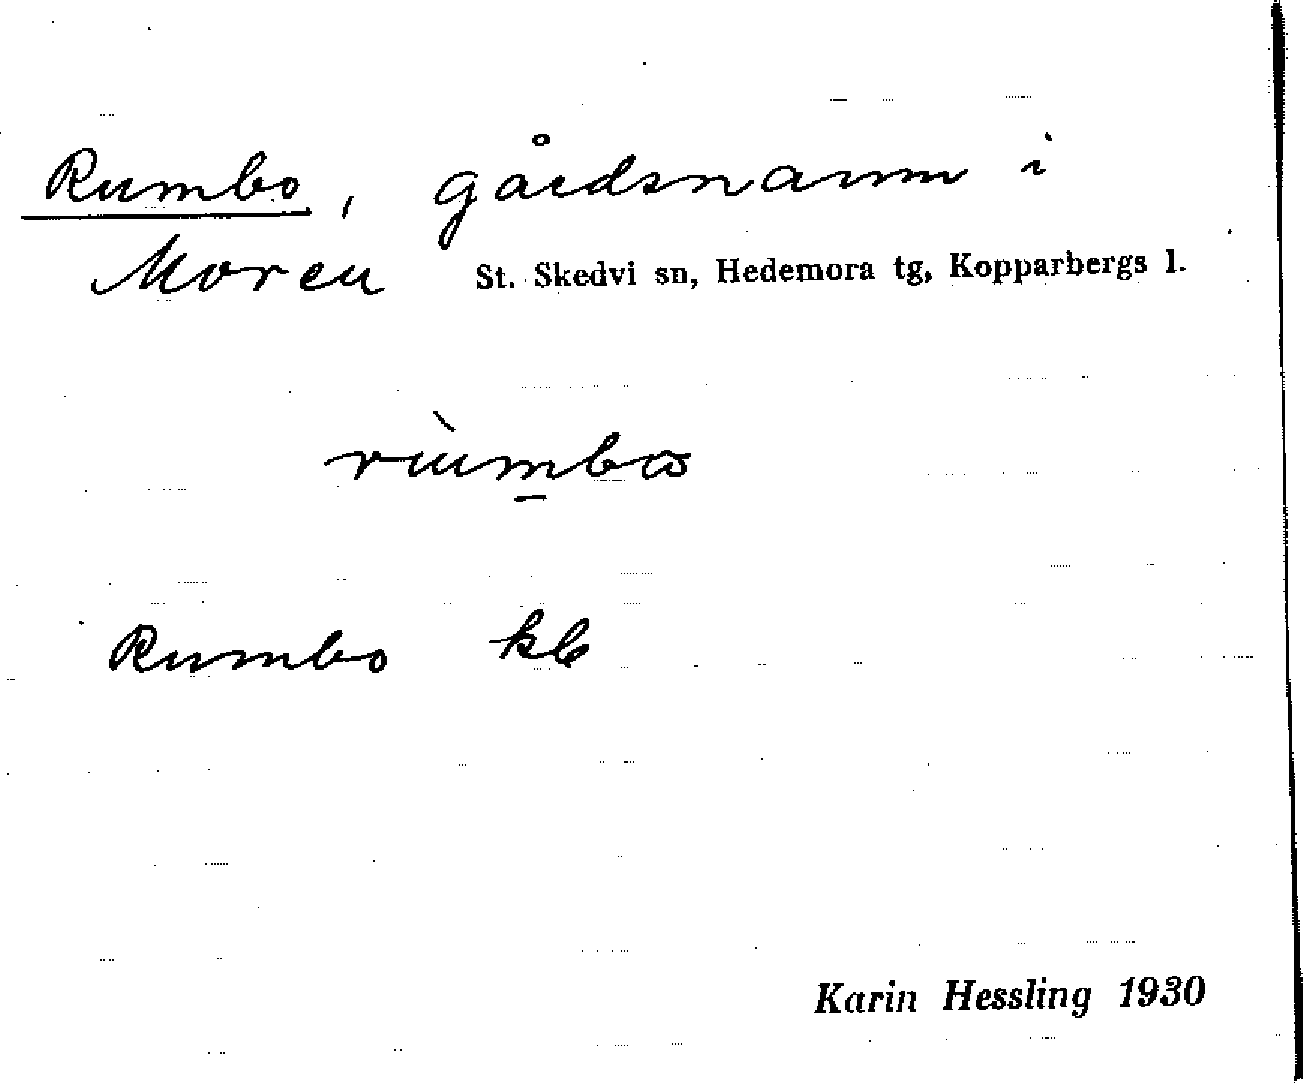 Rumbo, gårdsnamn i
Moren St. Skedvi sn, Hedemora tg, Kopparbergs l.
rùmbω
Rumbo kb
Karin Hessling 1930